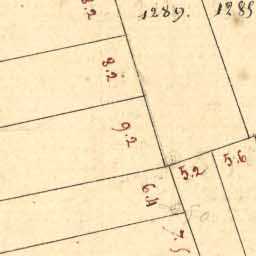 8.2
1289.
1285
8.2
9.2
5.2
5.6
6.4
7.5